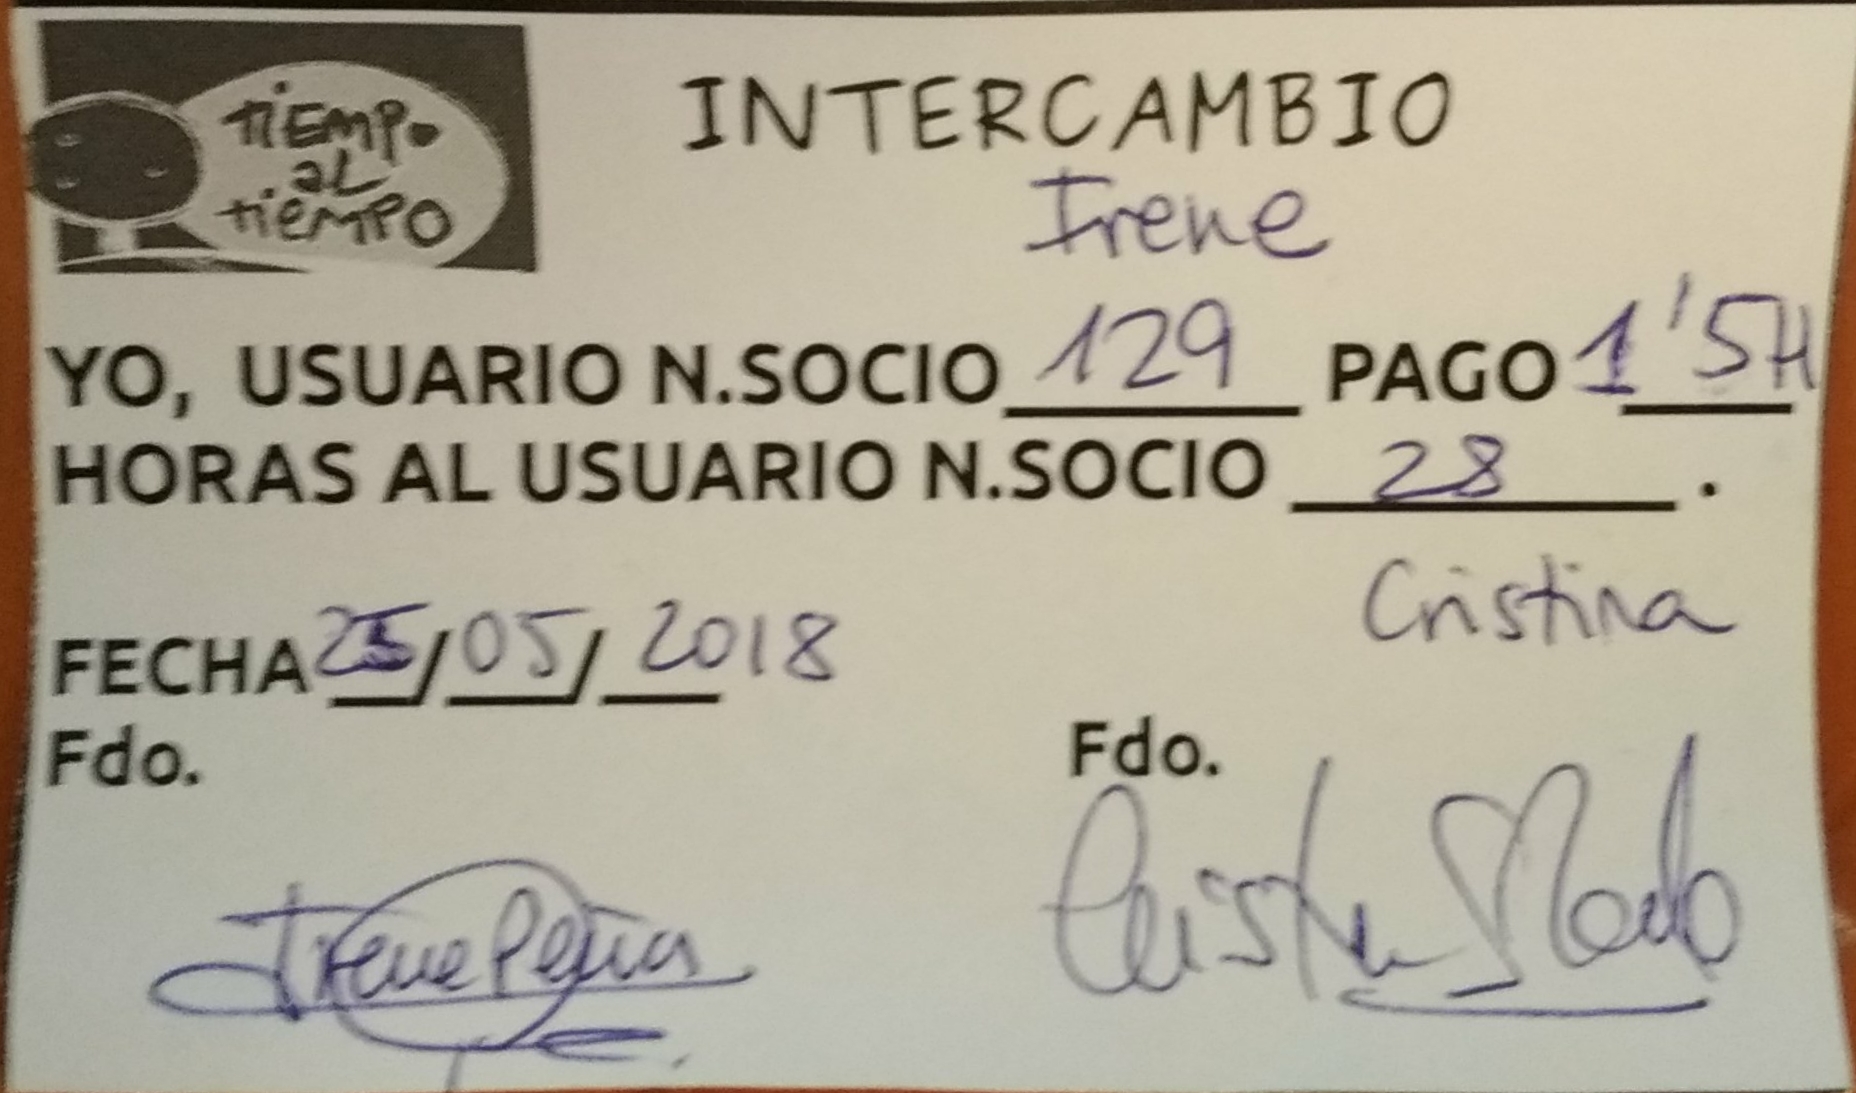 tiEMPo
aL
tiEMPO
INTERCAMBIO
Irene
YO, USUARIO N.SOCIO 129 PAGO 1'5H
HORAS AL USUARIO N.SOCIO 28 .
Cristina
FECHA 25/05/2018
Fdo.
Fdo.
Irene Peña